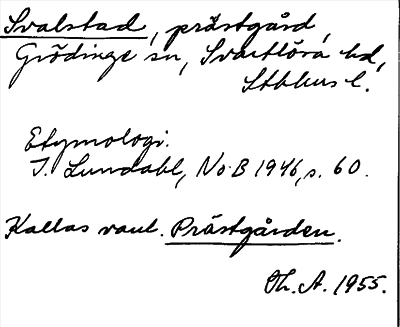 Svalstad, prästgård,
Grödinge sn, Svartlösa hd,
Sthlms l.
Etymologi:
I. Lundahl, NoB 1946, s. 60.
Kallas vanl. Prästgården.
Th. A. 1955.